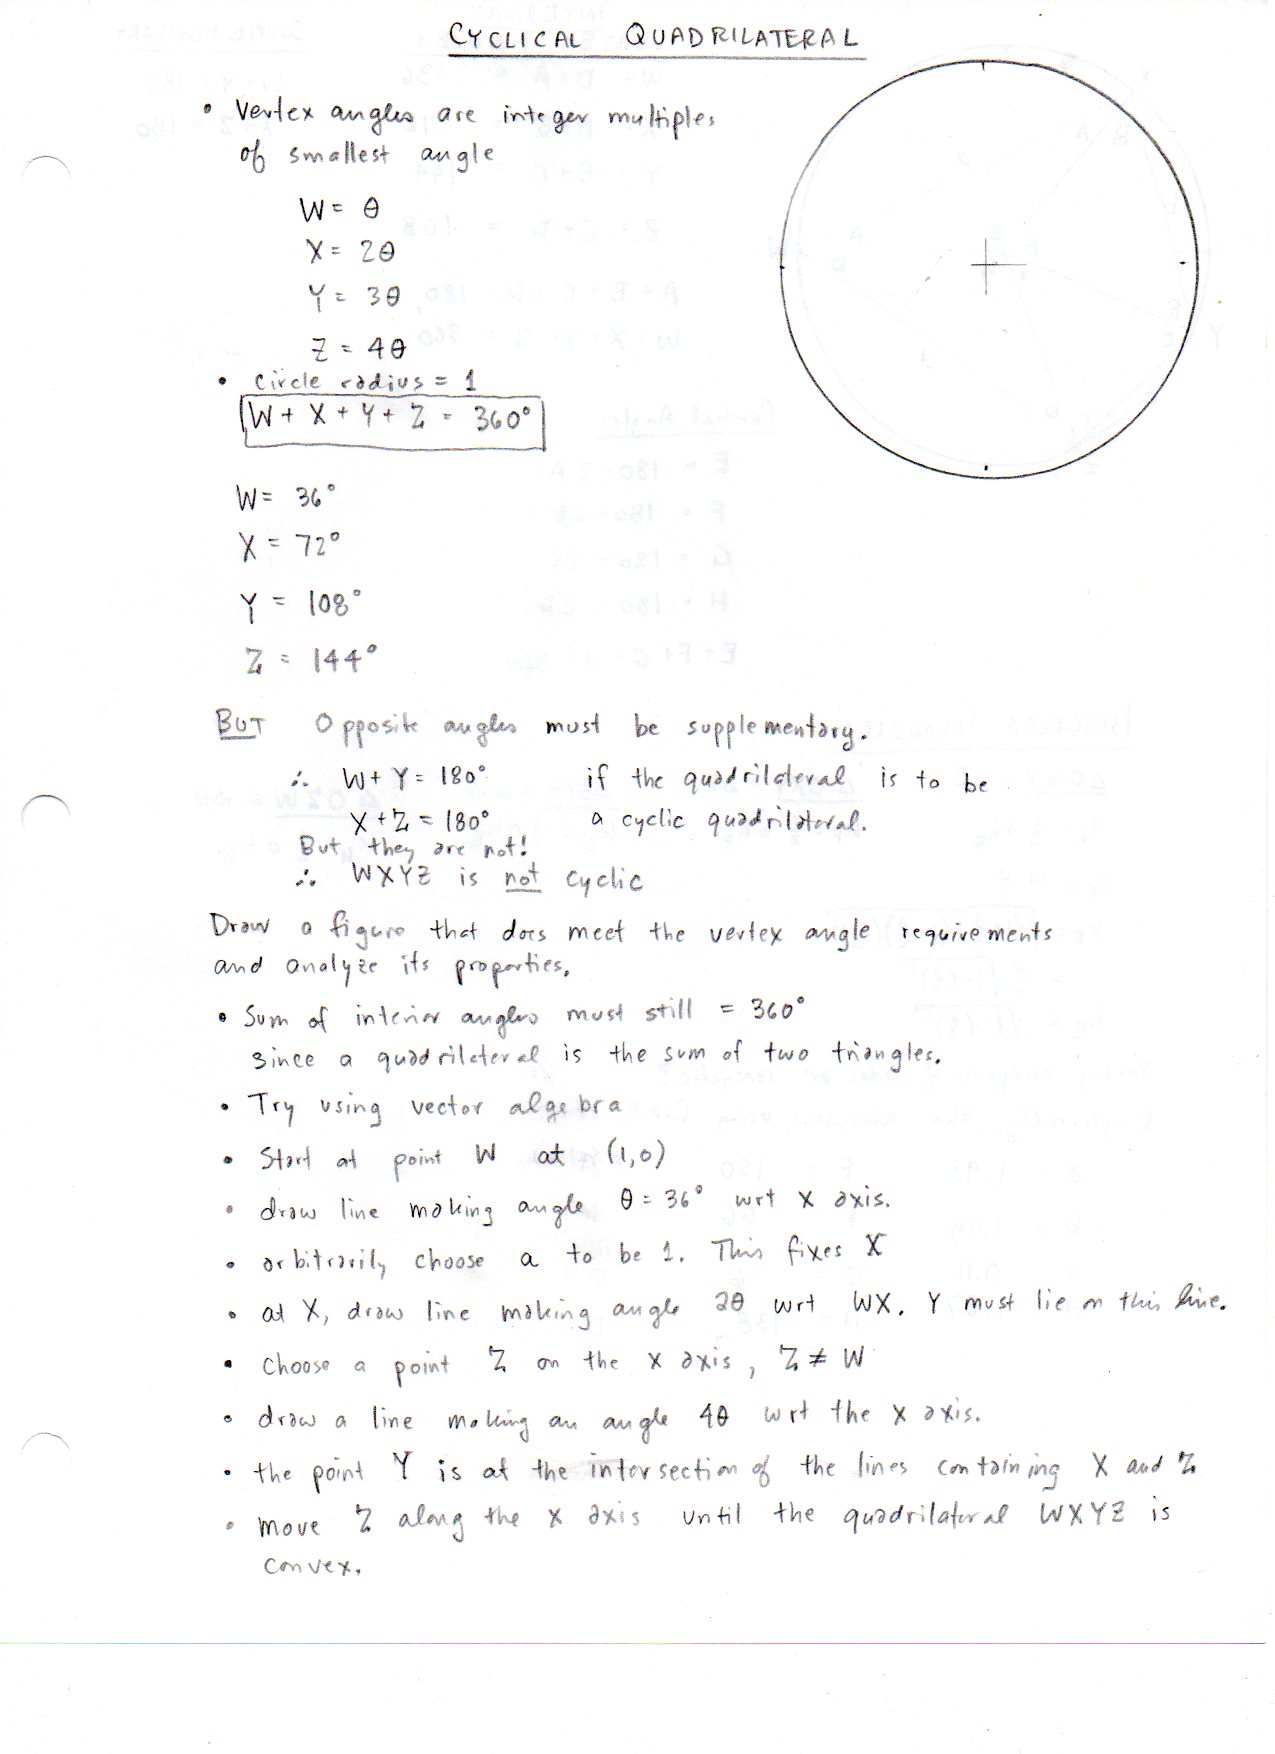 CYCLICAL QUADRILATERAL
• Vertex angles are integer multiples
of smallest angle
W = θ
X = 2θ
Y = 3θ
Z = 4θ
• Circle radius = 1
W + X + Y + Z = 360°
W = 36°
X = 72°
Y = 108°
Z = 144°
BUT Opposite angles must be supplementary.
∴ W + Y = 180° if the quadrilateral is to be
X + Z = 180° a cyclic quadrilateral.
But they are not!
∴ WXYZ is not cyclic
Draw a figure that does meet the vertex angle requirements
and analyze its properties.
• Sum of interior angles must still = 360°
since a quadrilateral is the sum of two triangles.
• Try using vector algebra
• Start at point W at (1,0)
• draw line making angle θ = 36° wrt X axis.
• arbitrarily choose a to be 1. This fixes X
• at X, draw line making angle 2θ wrt WX. Y must lie on this line.
• Choose a point Z on the x axis, Z ≠ W
• draw a line making an angle 4θ wrt the x axis.
• the point Y is at the intersection of the lines containing X and Z
• move Z along the x axis until the quadrilateral WXYZ is
convex.